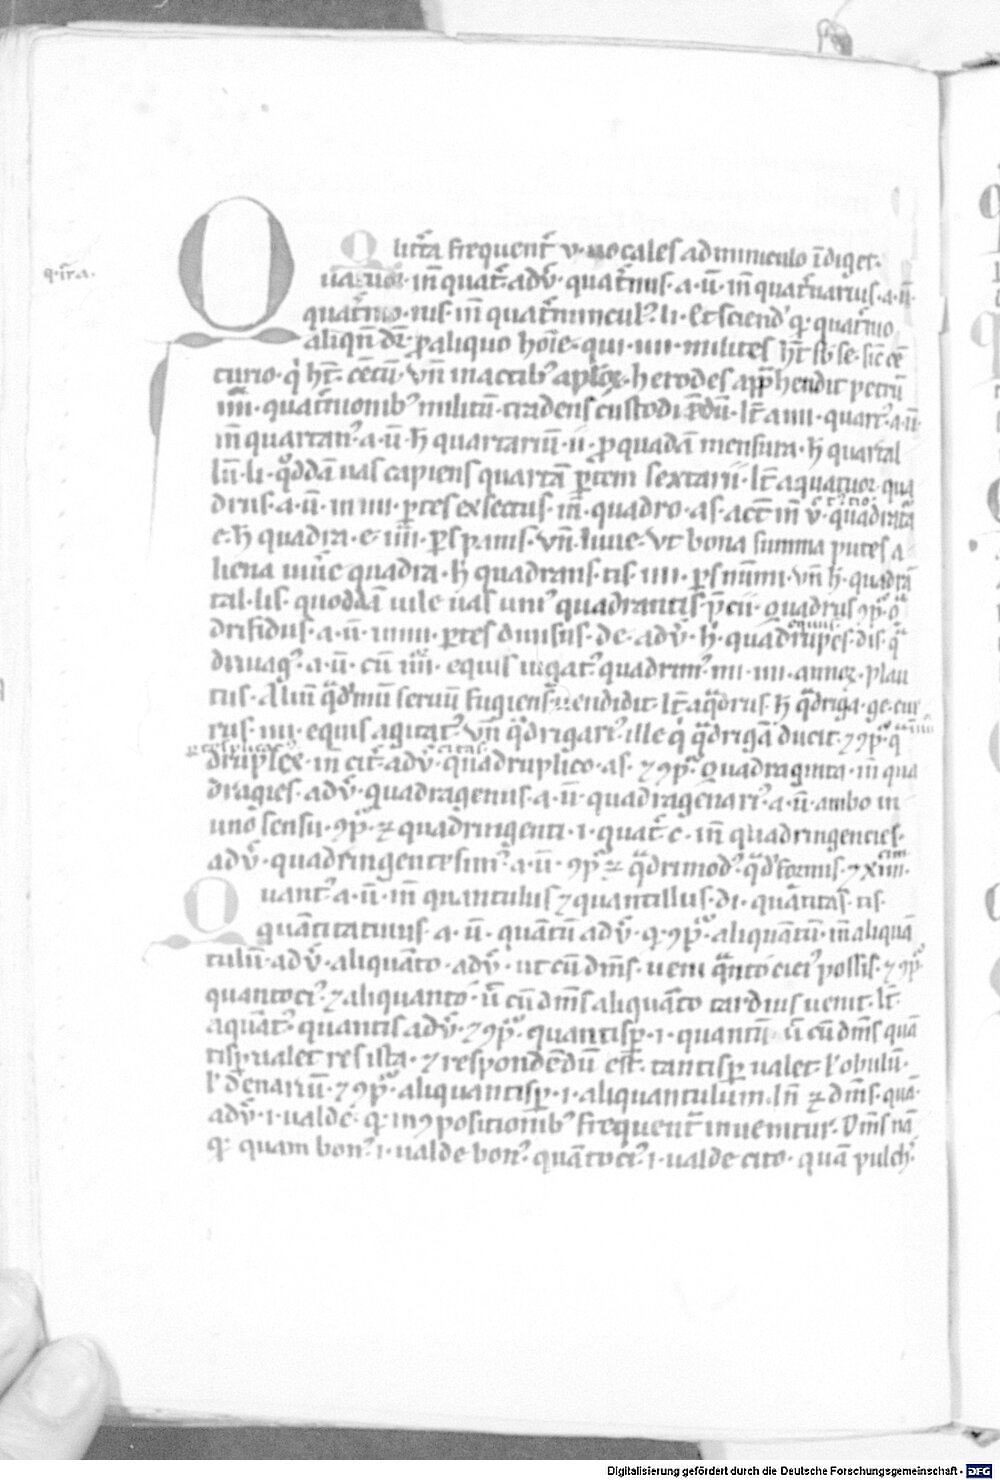 q·lr̄a·
Q litt̄a frequent̄ v· uocales adminiculo īdiget·
uatuor· in̄ quat̄· adv̄· quat̄nus· a· ū· in̄ quat̄narius· a· ū·
quat̄nio· nis· in̄ quat̄niuncul᷒· li· Et sciend᷒ q᷒· quat̄nio
aliqn̄ dr̄· p aliquo hoīe· qui· iiii· milites ht̄ sb᷒ se· sic cē
turio· q̇ ht̄· cētū· Vn̄ in actib᷒ aplōꝝ· herodes app̄hendit petrū
iiii· quat̄nionib᷒ militū· tradens custodiēdū· It̄ a iiii· quart᷒· a· ū·
in̄ quartan᷒· a· ū· h̄ quartariū· ii· p quadā mensura· h̄ quartal
lū· li· q̊ddā uas capiens quartā ptem sextarii· It̄ a quatuor· qua
drus· a· ū· in iiii· ptes exsectus· in̄· quadro· as· act̄ in̄ v̄· quadrata
e· h̄ quadra· e· iiii· ps panis· Vn̄· Iuue· Vt bona summa putes a
liena uiuē quadra· h̄ quadrans· tis· iiii· ps nūmi· vn̄ h̄· quadrā
tal· lis· quoddā uile uas uni᷒ quadrantis p̄cii· Quadrus ꝯp᷒· q̄
drifidus· a· ū· in iiii· ptes diuisus· de· adv̄· h̄· quadrupes· dis· q̄
equus
driiugꝰ· a· ū· cū iiii· equis iugat᷒· quadrim᷒· iiii· annoꝝ· Plau
tus· Aliū q̄drimū seruū fugiens uendidit· It̄ a q̄drus· h̄ q̄driga· ge· cur
rus· iiii· equis agitat᷒· Vn̄ q̄drigari᷒· ille q̇ q̄drigā ducit· ⁊ ꝯp᷒· q̄
druplex· in̄ cit̄· adv̄· quadruplico· as· ⁊ ꝯp᷒· Quadraginta· in̄ qua
dragies· adv̄· quadragenus· a· ū· quadragenari᷒· a· ū· ambo in
uno sensu· ꝯp᷒· ⁊ quadringenti· i· quat̄· c· in̄ quadringencies·
adv̄· quadringentesim᷒· a· ū· ꝯp᷒ ⁊ q̄drimod᷒· q̄driformis· ⁊ xiiii·
Quant᷒· a· ū· in̄ quantulus ⁊ quantillus· di· quātitas· tis·
quātitatiuus· a· ū· quātū adv̄· q᷒· ꝯp᷒· aliquātū· in̄ aliquā
tulū· adv̄· aliquāto· adv̄· ut cū dm̄s· ueni q̄nto cici᷒ possis· ⁊ ꝯp᷒·
quantoci᷒· ⁊ aliquanto· ū cū dm̄s aliquāto tardius uenit· It̄·
a quāt᷒· quantis adv̄· ⁊ ꝯp᷒· quantisp· i· quantū ū cū dm̄s quā
tisp ualet res ista· ⁊ respondēdū est· tantisp ualet· l᷒ obulū·
l᷒ denariū· ⁊ ꝯp᷒· aliquantisp· i· aliquantulum· In̄ ⁊ dm̄s· quā·
adv̄· i· ualde· q᷒· in ꝯpositionib᷒ frequent̄ inuenitur· Dm̄s nā
q᷒· quam bon᷒· i· ualde bon᷒· quātoci᷒· i· ualde cito· quā pulch᷒·
Digitalisierung gefördert durch die Deutsche Forschungsgemeinschaft · DFG